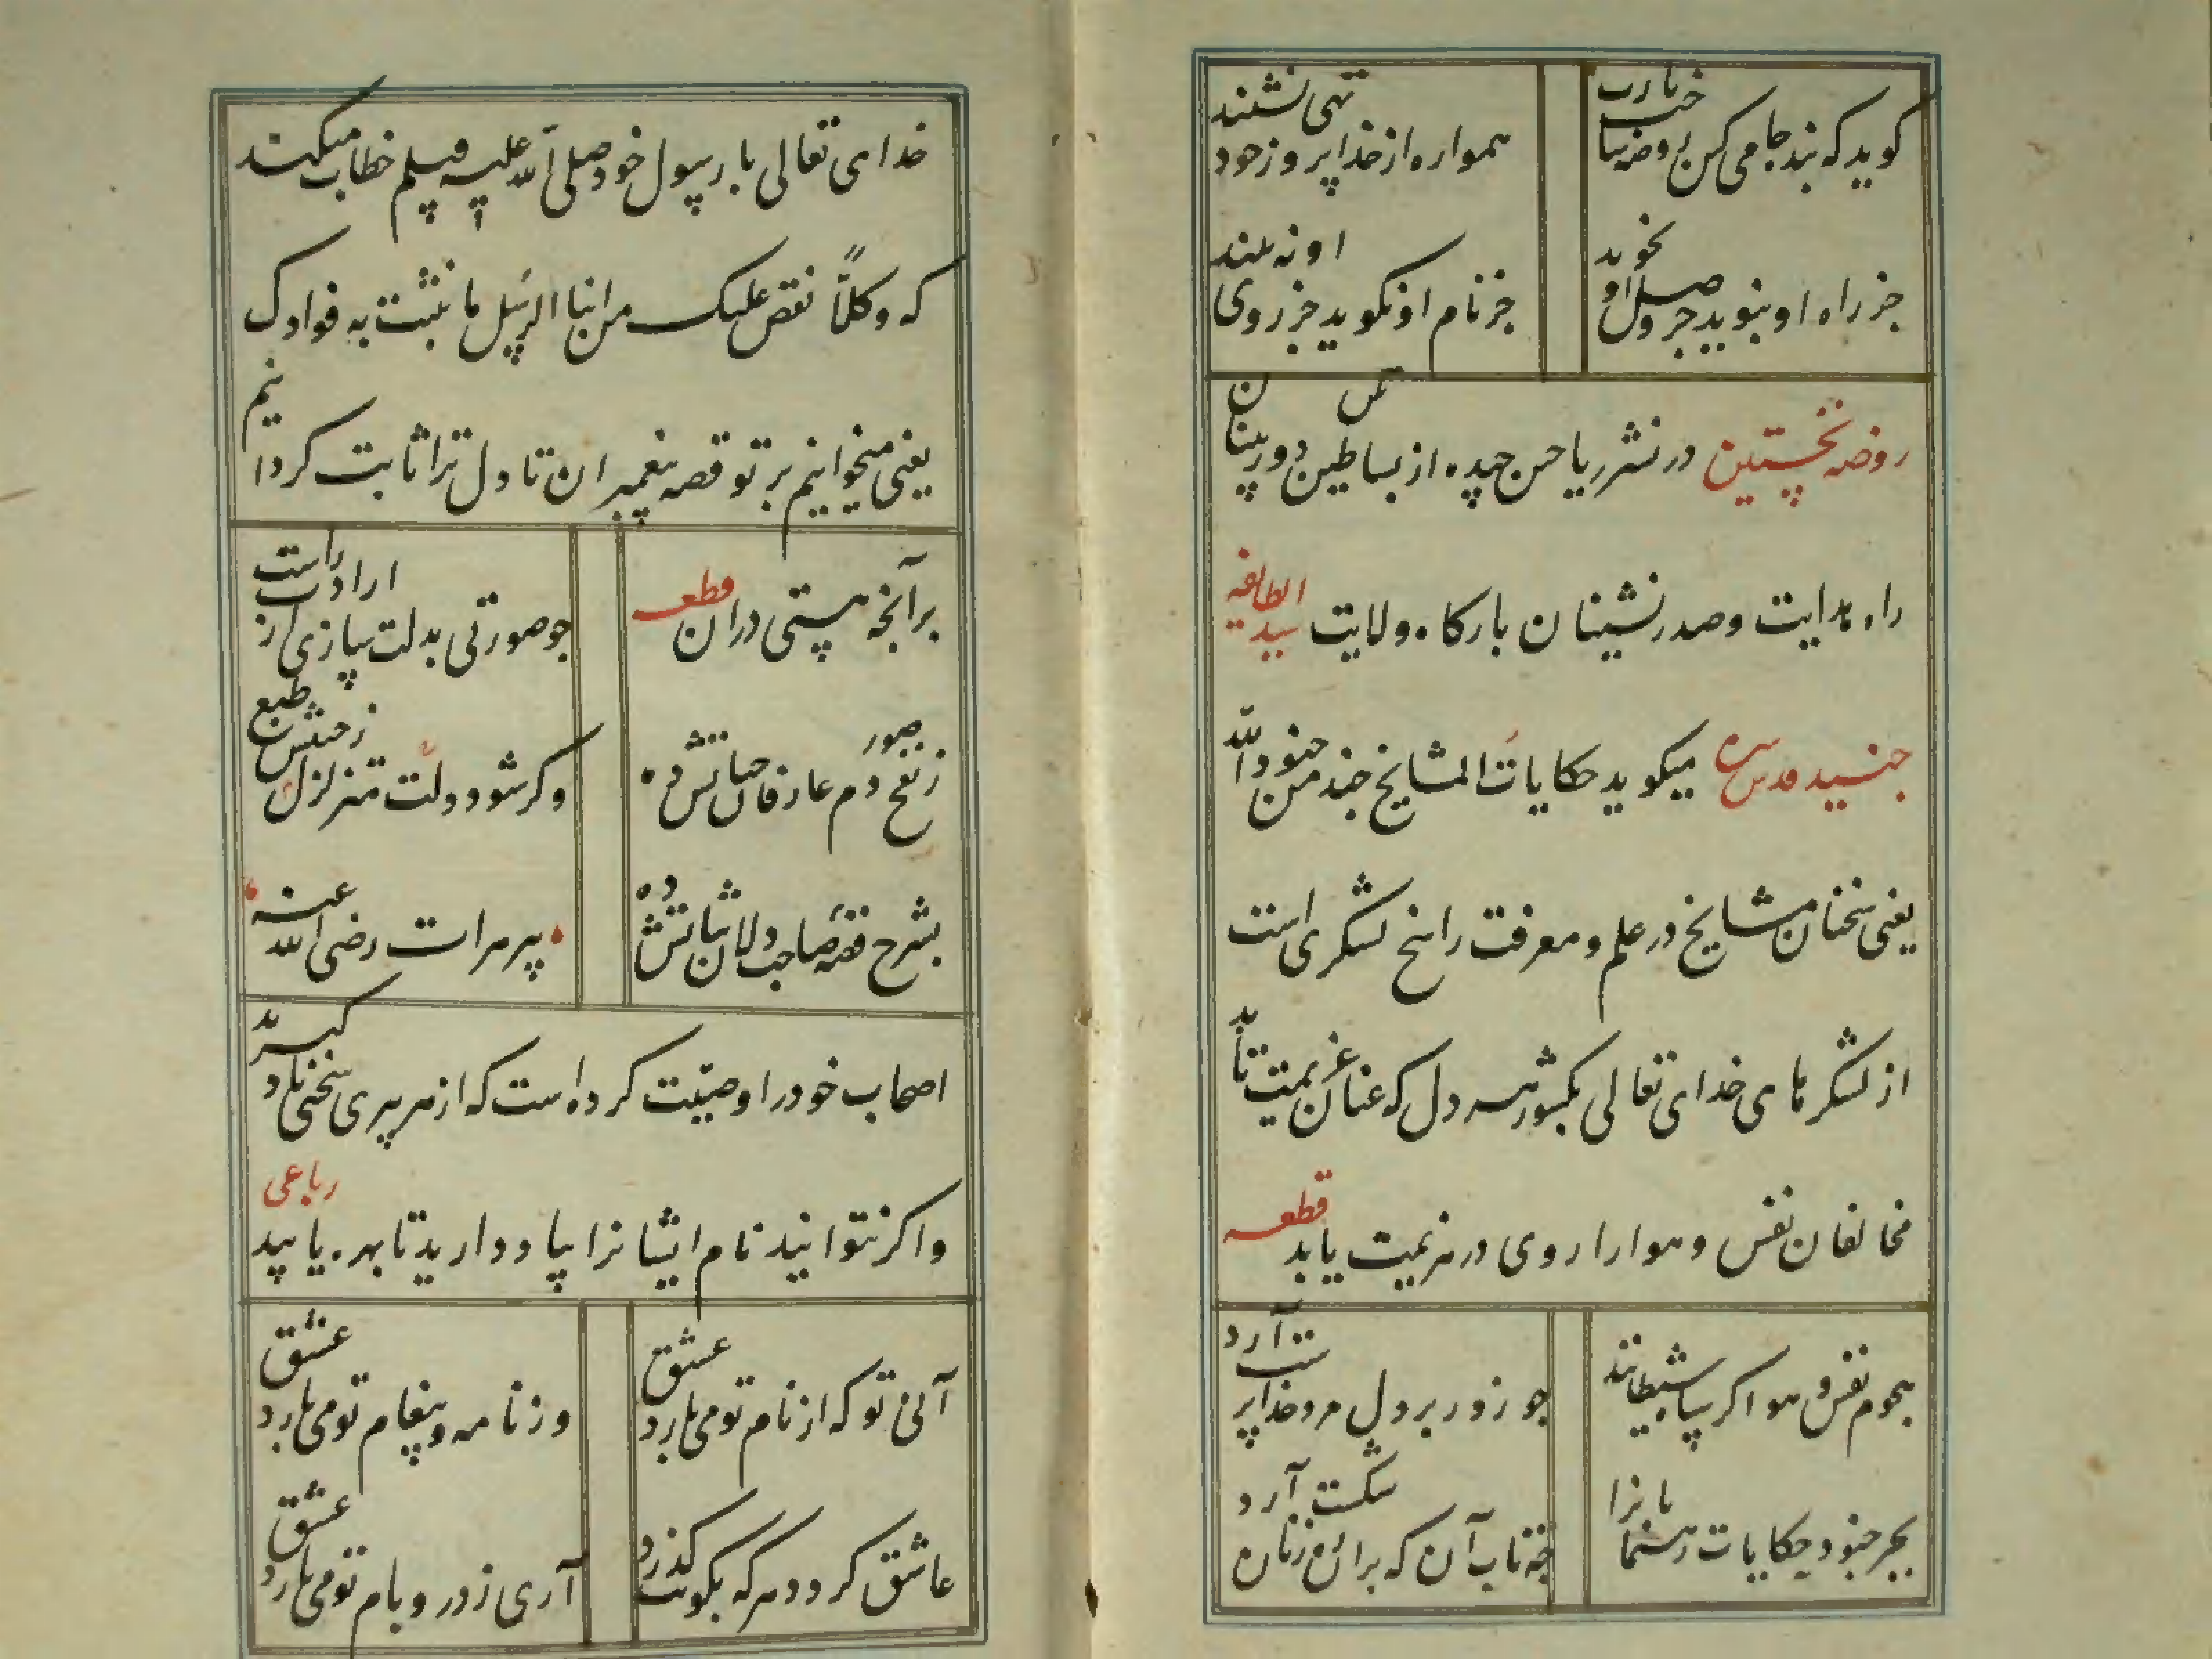 کوید که بند جامی کن بی روضه یا خارب
همواره از خدا پر وز خود تهی نشیند
جز راه او نبوید جز وصل او نجوید
جز نام او نکوید جز روی او نه بیند
روضه نخستین در نشر ریاحین چیده از بساطین دوربینان
راه هدایت و صدرنشینان بارکاه ولایت سید الطائفه
جنید قدس سره میکوید حکایات المشایخ جند من جنود الله
یعنی سخنان مشایخ در علم و معرفت راسخ لشکری است
از لشکرهای خدای تعالی بکشور هر دل که عنان عزیمت تابد
مخالفان نفس و هوا را روی در هزیمت یابد قطعه
هجوم نفس و هوا کر سپاه شیطانند
چو زور بر دل مرد خداپرست آرد
بجز جنود حکایات رهنمایانرا
چه تاب آن که بران رهزنان شکست آرد
خدای تعالی با رسول خود صلی الله علیه وسلم خطاب میکند
که وکلاّ نقص علیک من انباء الرسل ما نثبت به فوادک
یعنی میخوانیم بر تو قصه پیغمبران تا دل ترا ثابت کردانیم
برآنچه هستی دران قطعه
چو صورتی بدلت سازی از ارادت راست
ز نفخ دم عارفان حیاتش ده
وکر شود دلت متزلزل ز جنبش طبع
بشرح قصه صاحب دلان ثباتش ده
پیر هرات رضی الله عنه
اصحاب خود را وصیت کرده است که از هر پیری سخنی یاد کیرید
واکر نتوانید نام ایشانرا بیاد دارید تا بهره یابید رباعی
آنی تو که از نام تو می بارد عشق
وز نامه و پیغام تو می بارد عشق
عاشق کردد هر که بکویت کذرد
آری ز در و بام تو می بارد عشق